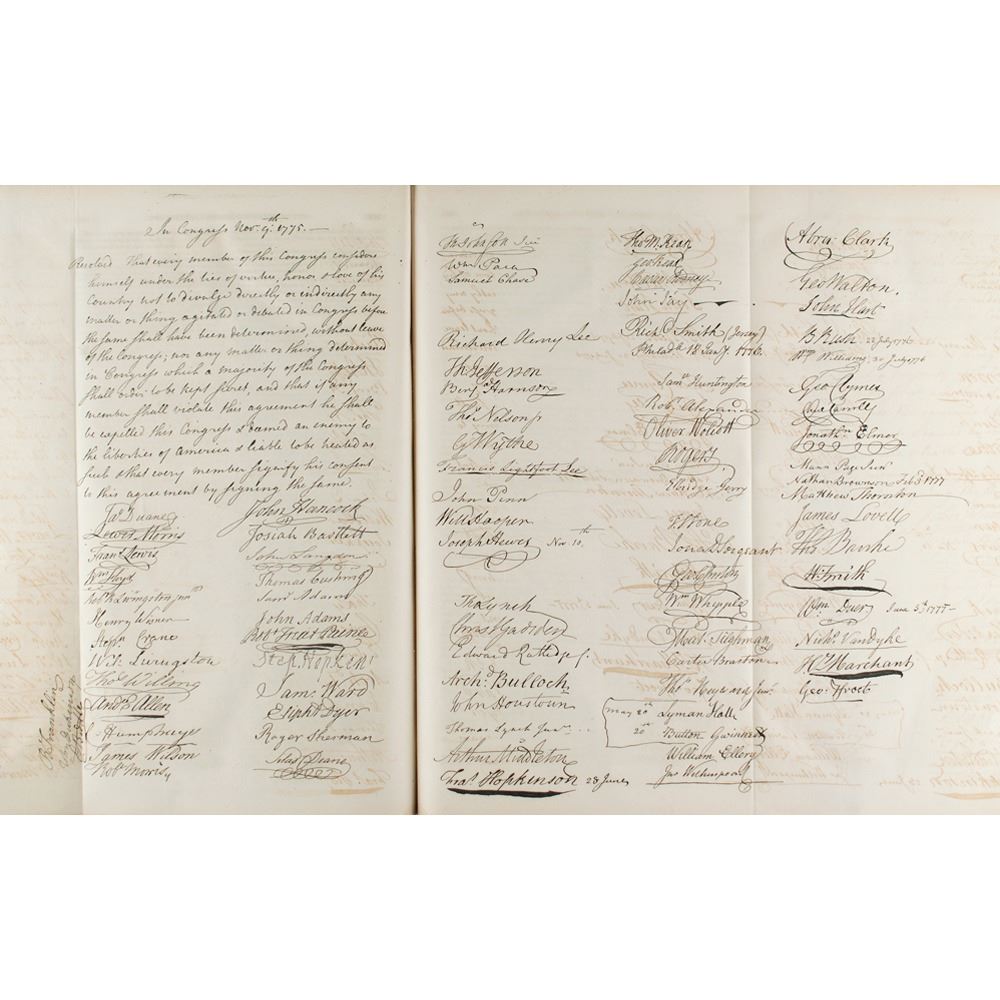 In Congress Nov. 9th. 1775.—
Resolved That every member of this Congress considers
himself under the ties of virtue, honor & love of his
Country not to divulge directly or indirectly any
matter or thing agitated or debated in Congress before
the same shall have been determined, without leave
of the Congress; nor any matter or thing determined
in Congress which a majority of the Congress
shall order to be kept secret, and that if any
member shall violate this agreement he shall
be expelled this Congress & deemed an enemy to
the liberties of America & liable to be treated as
such & that every member signify his consent
to this agreement by signing the same.
Jas. Duane
Lewis Morris
Frans. Lewis
Wm. Floyd
Robt. R. Livingston junr.
Henry Wisner
Stepn. Crane
Wil: Livingston
Thos. Willing
Andw. Allen
C Humphreys
James Wilson
Robt. Morris,
B. Franklin
John Hancock
Josiah Bartlett
John Langdon
Thomas Cushing
Saml Adams
John Adams
Robt. Treat Paine
Step. Hopkins
Sam: Ward
Elipht Dyer
Roger Sherman
Silas Deane
Th Johnson Jun
Wm Paca
Samuel Chase
Richard Henry Lee
Th Jefferson
Benja Harrison
Thos. Nelson jr
G Wythe
Francis Lightfoot Lee
John Penn
Will Hooper
Joseph Hewes Nov. 10th
Tho Lynch
Christ Gadsden
Edward Rutledge
Archd. Bulloch
John Houstoun
Thomas Lynch Junr.
Arthur Middleton
Fras. Hopkinson 28 June
Tho M:Kean
Geo: Read
Caesar Rodney
John Jay
Richd. Smith (Jersey)
Philada. 18 Jany. 1776.
Saml. Huntington
Robt. Alexander
Oliver Wolcott
Rogers
Elbridge Gerry
T Stone
Jona D Sergeant
Wm Whipple
Mat. Tilghman
Carter Braxton
Thos. Heyward Junr.
May 20th Lyman Hall
20th Button Gwinnett
William Ellery
Jno Witherspoon
Abra: Clark
Geo Walton.
John Hart
B Rush 22 July 1776
Wm Williams 30 July 1776
Geo Clymer
Jonathn. Elmer
Mann Page Junr
Nathan Brownson Feb 3 1777
Matthew Thornton
James Lovell
Ths. Burke
Wm. Duer June 5th. 1777—
Nichs. Vandyke
Hy Marchant
Geo: Frost